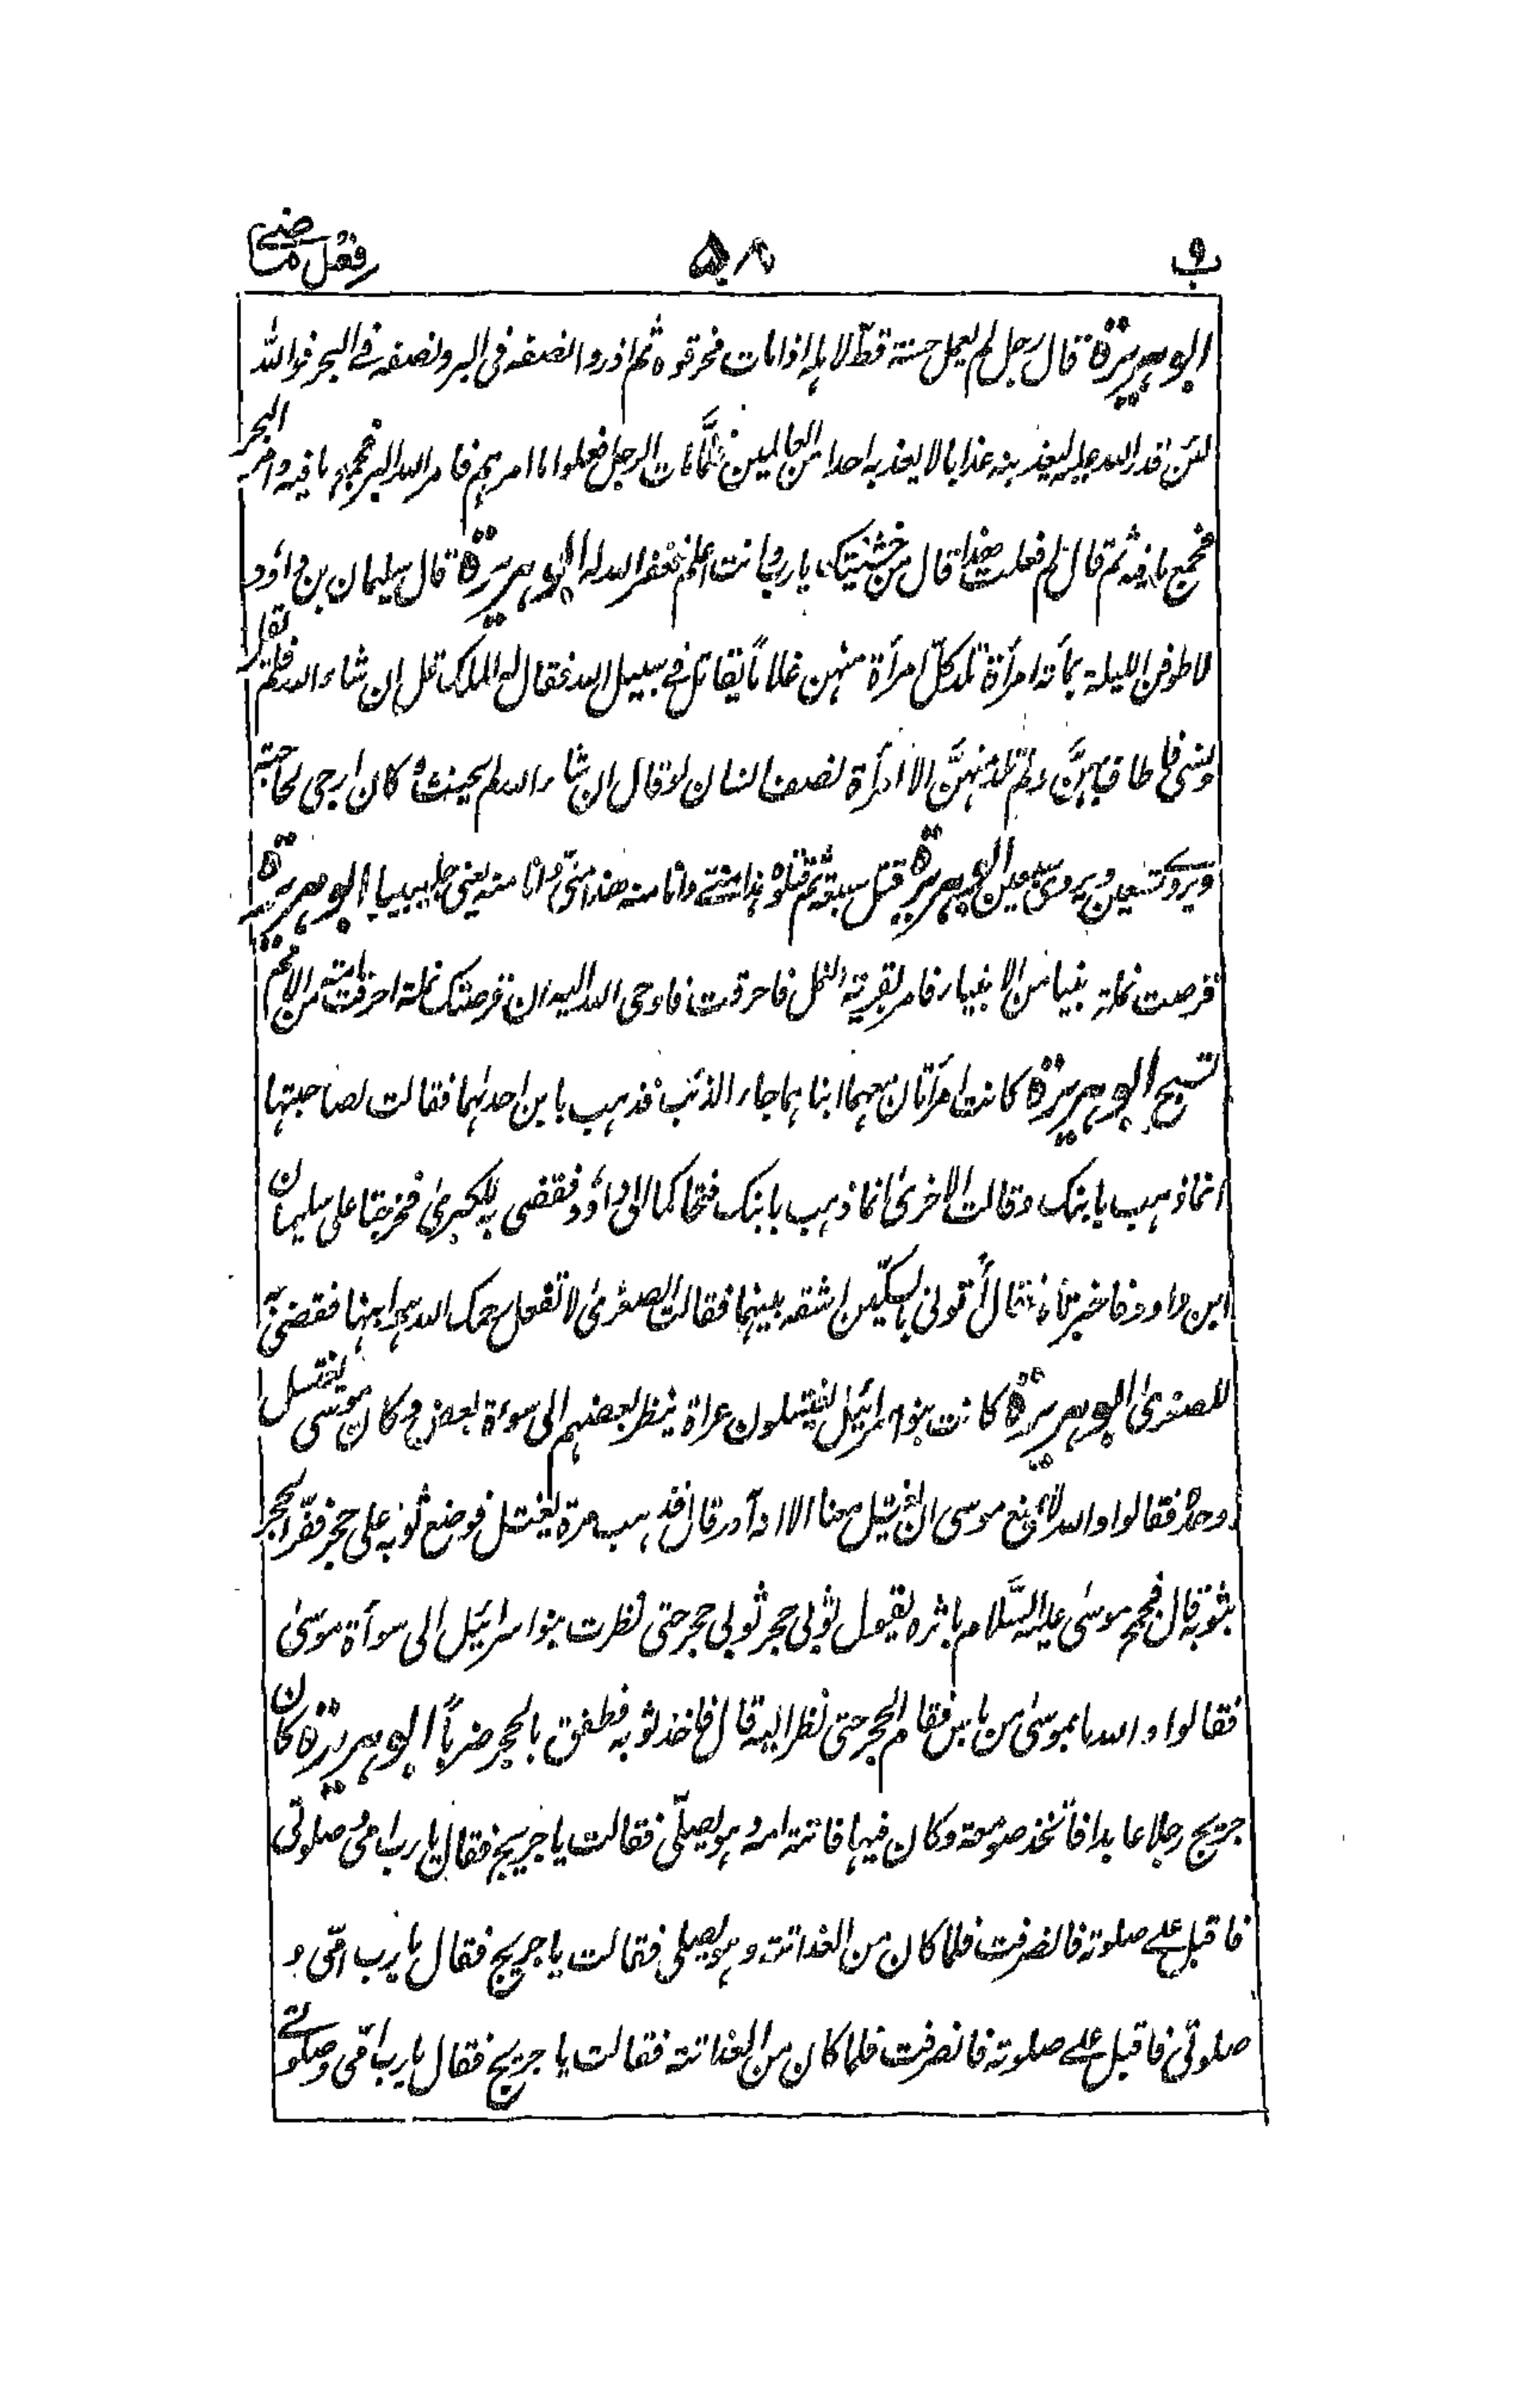 ب ٩
٥٨
فعل ماضی
ابو هريرة قال رجل لم يعمل حسنة قط لاهله اذا مات فحرقوه ثم اذروا نصفه فى البر ونصفه فى البحر فوالله
لئن قدر الله عليه ليعذبنه عذابا لا يعذبه احدا من العالمين فلمّا مات الرجل فعلوا ما امرهم فامر الله البر فجمع ما فيه وامر البحر
فجمع ما فيه ثم قال لم فعلت هذا قال من خشيتك يا رب وانت اعلم فغفر الله له ابو هريرة قال سليمان بن داؤد
لاطوفن الليلة بمأئة امرأة تلد كلّ امرأة منهن غلاماً يقاتل فى سبيل الله فقال له الملك قل ان شاء الله فلم يقل
ونسى فاطاف بهنّ ولم تلد منهنّ الا امرأة نصف انسان لو قال ان شاء الله لم يحنث وكان ارجى لحاجته
ويروى تسعين ويروى سبعين ابو هريرة قتل سبعة ثم قتلوه هذا منى وانا منه هذا منّى وانا منه يعنى جليبيبا ابو هريرة
قرصت نملة نبيا من الانبياء فامر بقرية النمل فاحرقت فاوحى الله اليه ان قرصتك نملة احرقت امة من الامم
تسبح ابو هريرة كانت امرأتان معهما ابناهما جاء الذئب فذهب بابن احدٰهما فقالت لصاحبتها
انما ذهب بابنك وقالت الاخرىٰ انما ذهب بابنك فتحاكما الى داؤد فقضى به للكبرىٰ فخرجتا على سليمان
ابن داود فاخبرتاه فقال أتونى بالسكّين اشقه بينهما فقالت الصغرىٰ لا تفعل رحمك الله هو ابنها فقضىٰ به
للصغرىٰ ابو هريرة كانت بنو اسرائيل يغتسلون عراة ينظر بعضهم الى سوءة بعض وكان موسى يغتسل
وحده فقالوا والله ما يمنع موسى ان يغتسل معنا الا انه آدر قال فذهب مرة يغتسل فوضع ثوبه على حجر ففرّ الحجر
بثوبه قال فجمح موسىٰ عليه السّلام باثره يقول ثوبى حجر ثوبى حجر حتى نظرت بنو اسرائيل الى سوأة موسىٰ
فقالوا والله ما بموسىٰ من باس فقام الحجر حتى نظر اليه قال فاخذ ثوبه فطفق بالحجر ضرباً ابو هريرة كان
جريج رجلا عابدا فاتخذ صومعة وكان فيها فاتته امه وهو يصلّى فقالت يا جريج فقال يا رب امى وصلوتى
فاقبل على صلوته فانصرفت فلما كان من الغد اتته وهو يصلى فقالت يا جريج فقال يا رب امّى و
صلوتى فاقبل على صلوته فانصرفت فلما كان من الغد اتته فقالت يا جريج فقال يا رب امّى وصلوتى